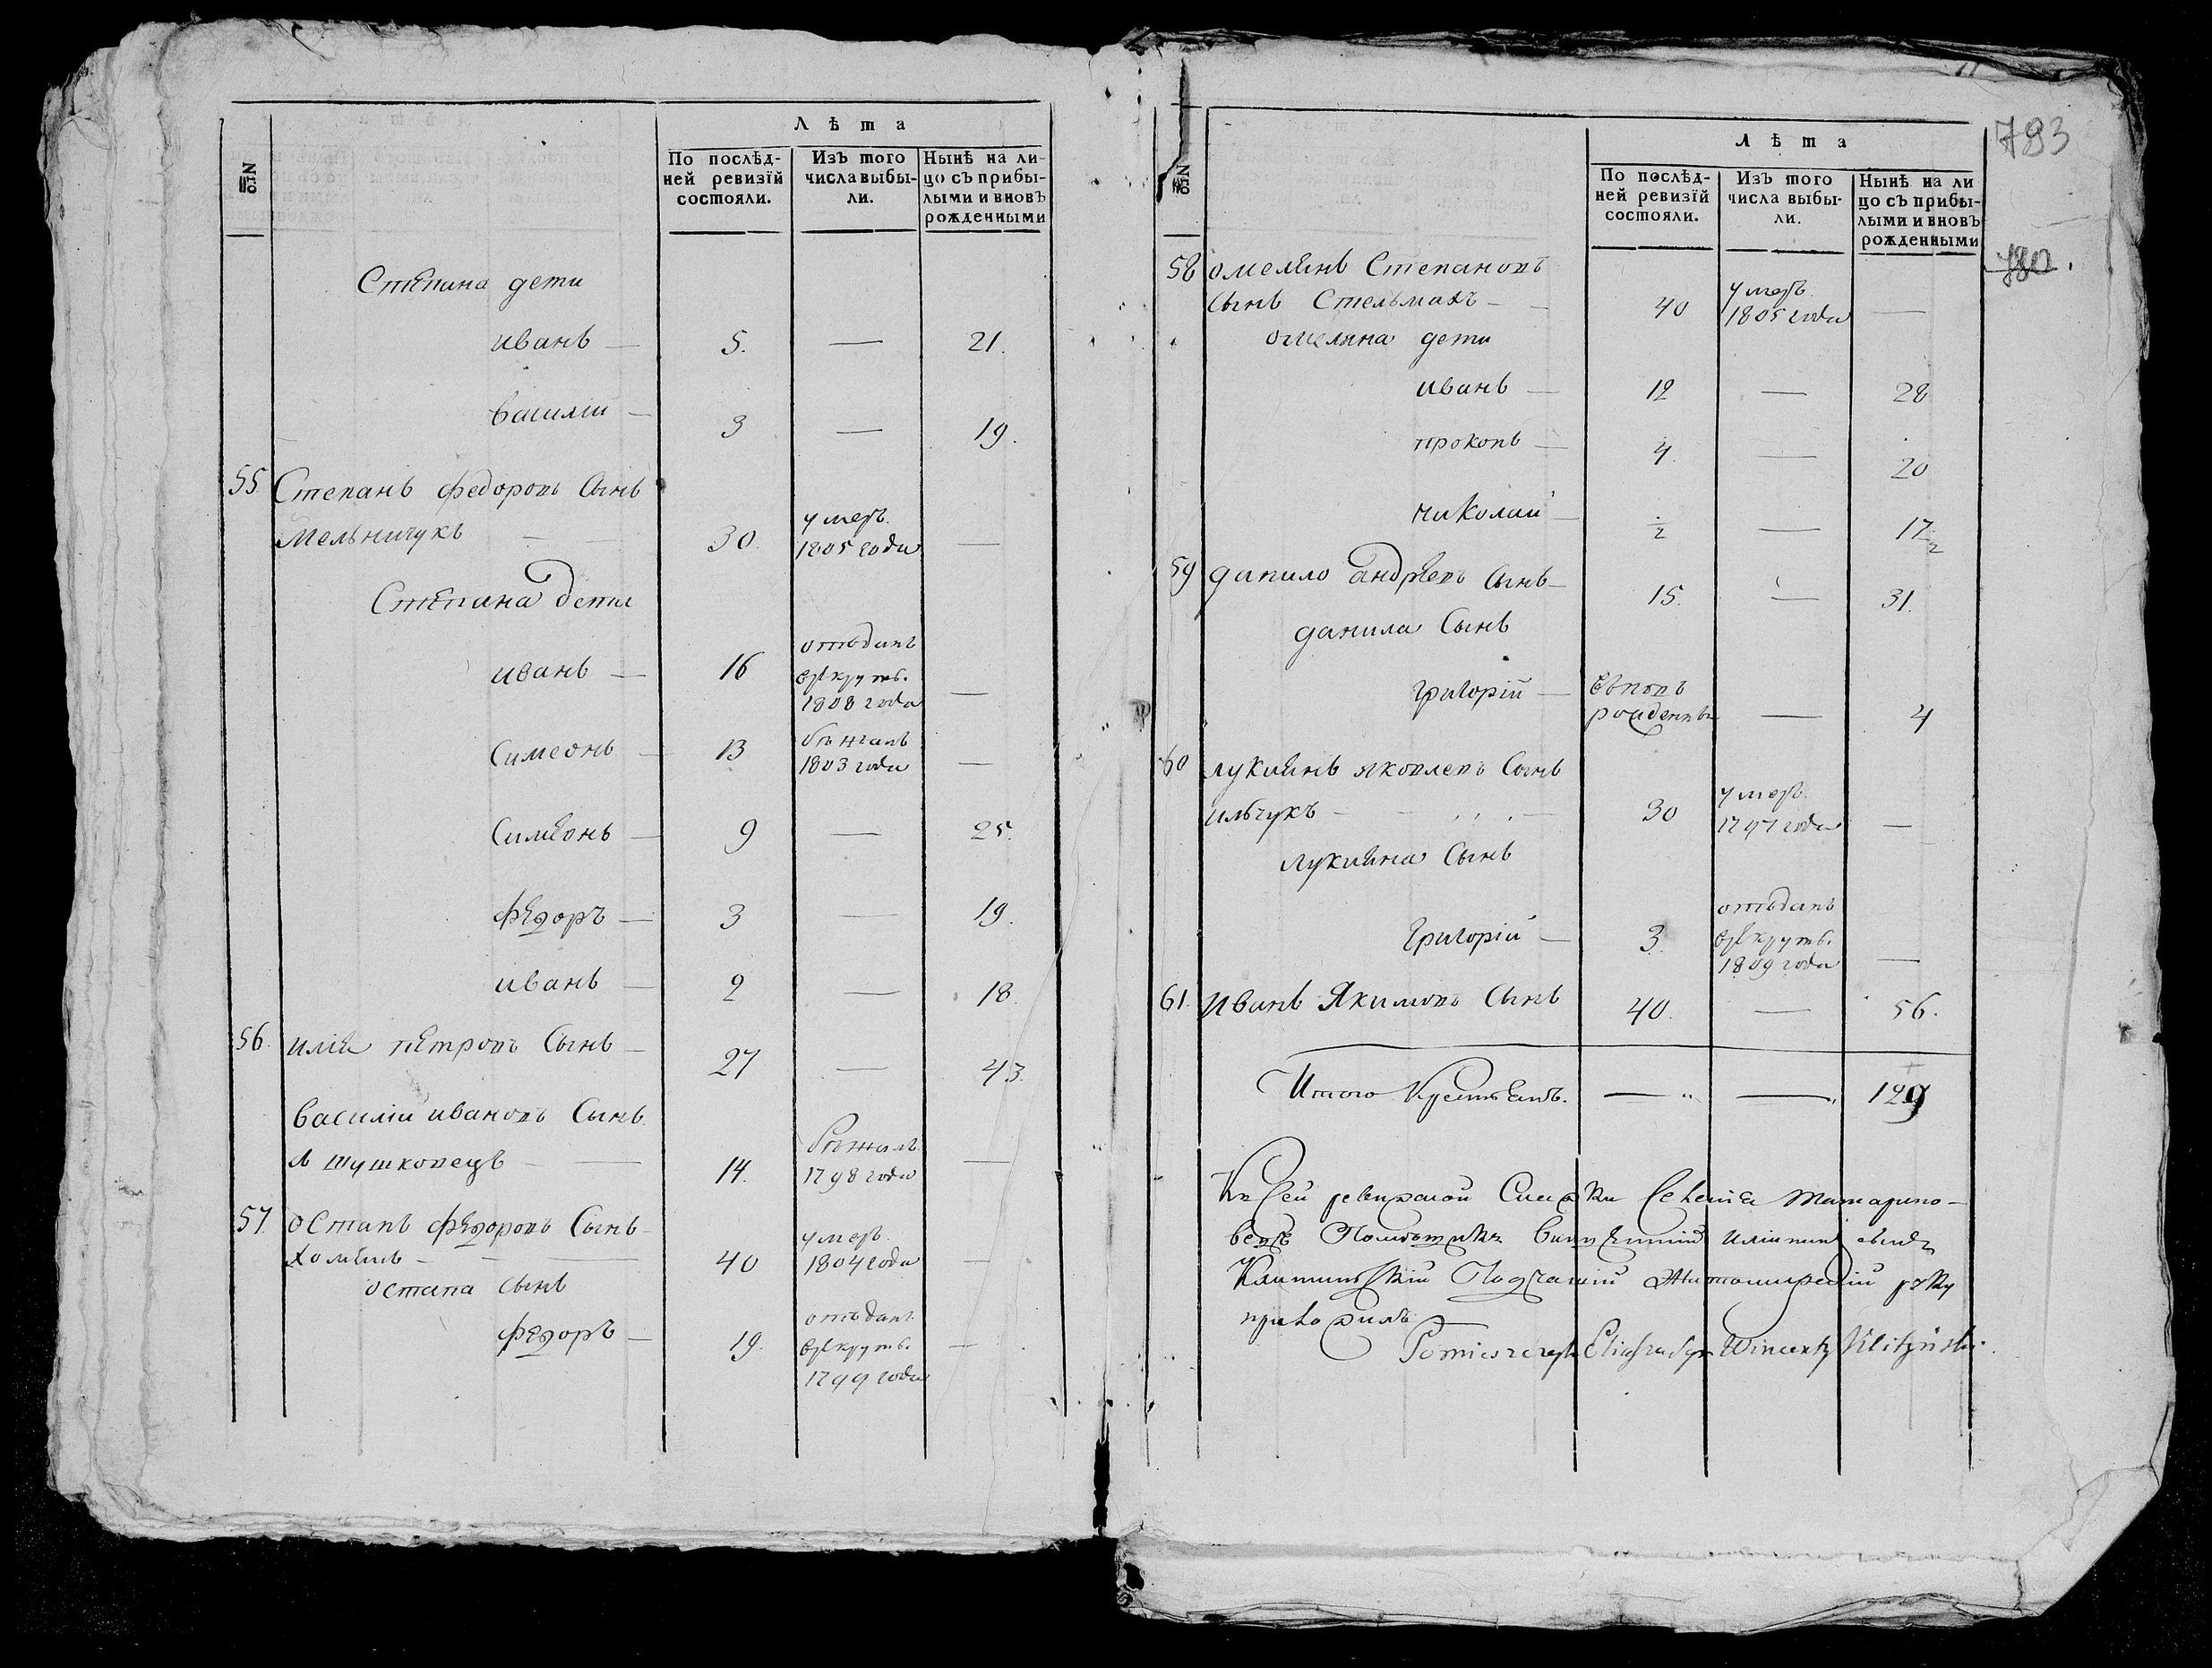 №
Лѣта
По послѣд-
ней ревизїй
состояли.
Изъ того
числа выбы-
ли.
Нынѣ на ли-
цо съ прибы-
лыми и вновъ
рожденными
Степана дети
иванъ — 5. — 21.
василий — 3 — 19.
55. Степанъ федоровъ Сынъ
Мельничукъ — 30. умеръ. 1805 года —
Степана дети
иванъ — 16 отъданъ врекрутъ. 1808 года —
Симеонъ — 13 бежалъ 1803 года —
Симеонъ — 9 — 25.
федоръ — 3 — 19.
иванъ — 2 — 18.
56. илия петровъ Сынъ — 27 — 43.
василий ивановъ Сынъ
14. бежалъ 1798 года —
57. Остапъ федоровъ Сынъ —
40 умеръ. 1804 года —
остапа сынъ
федоръ — 19. отъданъ врекрутъ. 1799 года —
№
Лѣта
По послѣд-
ней ревизїй
состояли.
Изъ того
числа выбы-
ли.
Нынѣ на ли
цо съ прибы-
лыми и вновъ
рожденными
793
780.
58 омелянъ Степановъ
сынъ Стельмахъ — 40 умеръ. 1805 года —
омеляна дети
иванъ — 12 — 28
прокопъ — 4. — 20
николай — ½ — 17½
59 данило андреевъ Сынъ — 15. — 31.
данила Сынъ
григорій — вновъ рожденны — 4
60 лукиянъ яковлевъ Сынъ
ильчукъ — 30 умеръ. 1797 года —
лукияна Сынъ
григорій — 3. отъданъ врекрутъ. 1809 года —
61. Иванъ Якимовъ Сынъ 40. — 56.
Итого Крестьянъ. — — 129
Ксей ревизской Сказки Селения татарино-
вецъ
Подчаший Житомирский руку
приложилъ
Wincenty Klityński.